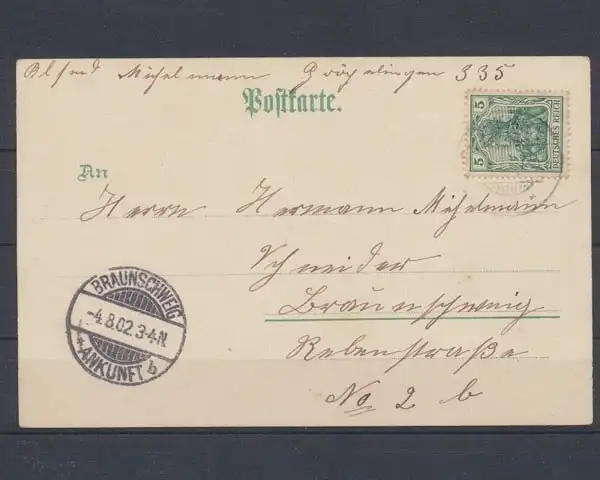 Alfred Michelmann Gröpelingen 335
Postkarte.
5 5
DEUTSCHES REICH
An
Herrn Hermann Michelmann
Schneider
Braunschweig
Rebenstraße
No 2 b
BRAUNSCHWEIG
-4.8.02.3-4N.
ANKUNFT b